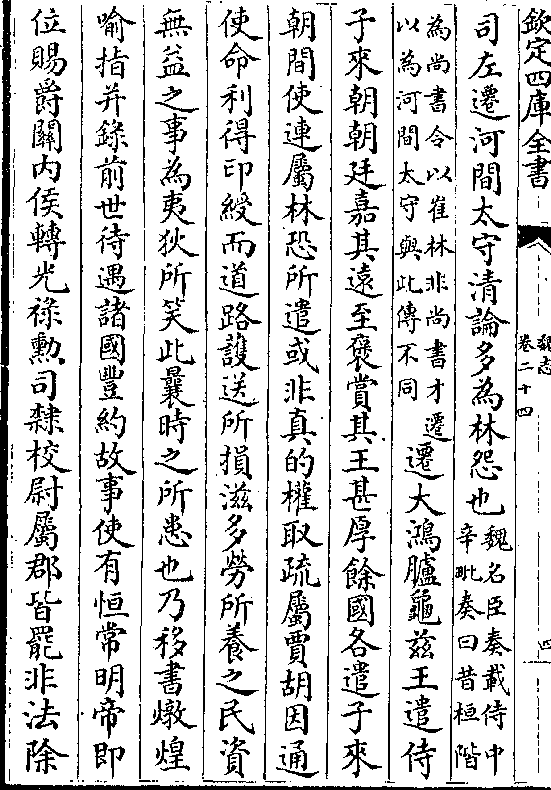 欽定四庫全書
魏志
卷二十四
四
司左遷河間太守清論多為林怨也魏名臣奏載侍中
辛毗奏曰昔桓階
為尚書令以崔林非尚書才遷
以為河間太守與此傳不同
遷大鴻臚龜茲王遣侍
子來朝朝廷嘉其遠至褒賞其王甚厚餘國各遣子來
朝間使連屬林恐所遣或非真的權取疏屬賈胡因通
使命利得印綬而道路護送所損滋多勞所養之民資
無益之事為夷狄所笑此曩時之所患也乃移書燉煌
喻指并錄前世待遇諸國豐約故事使有恒常明帝即
位賜爵關內侯轉光祿勲司隸校尉屬郡皆罷非法除